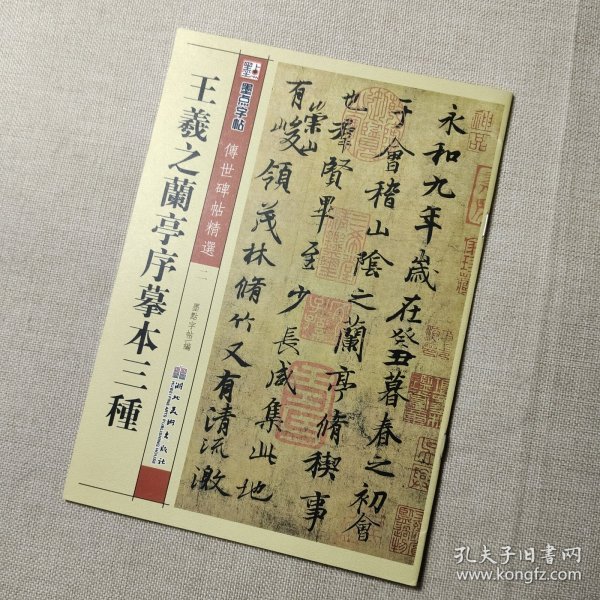 墨点字帖
傳世碑帖精選
二
王羲之蘭亭序摹本三種
墨點字帖編
湖北美術出版社
永和九年歲在癸丑暮春之初會
于會稽山陰之蘭亭脩稧事
也羣賢畢至少長咸集此地
有崇山峻領茂林脩竹又有清流激
孔夫子旧书网
www.kongfz.com